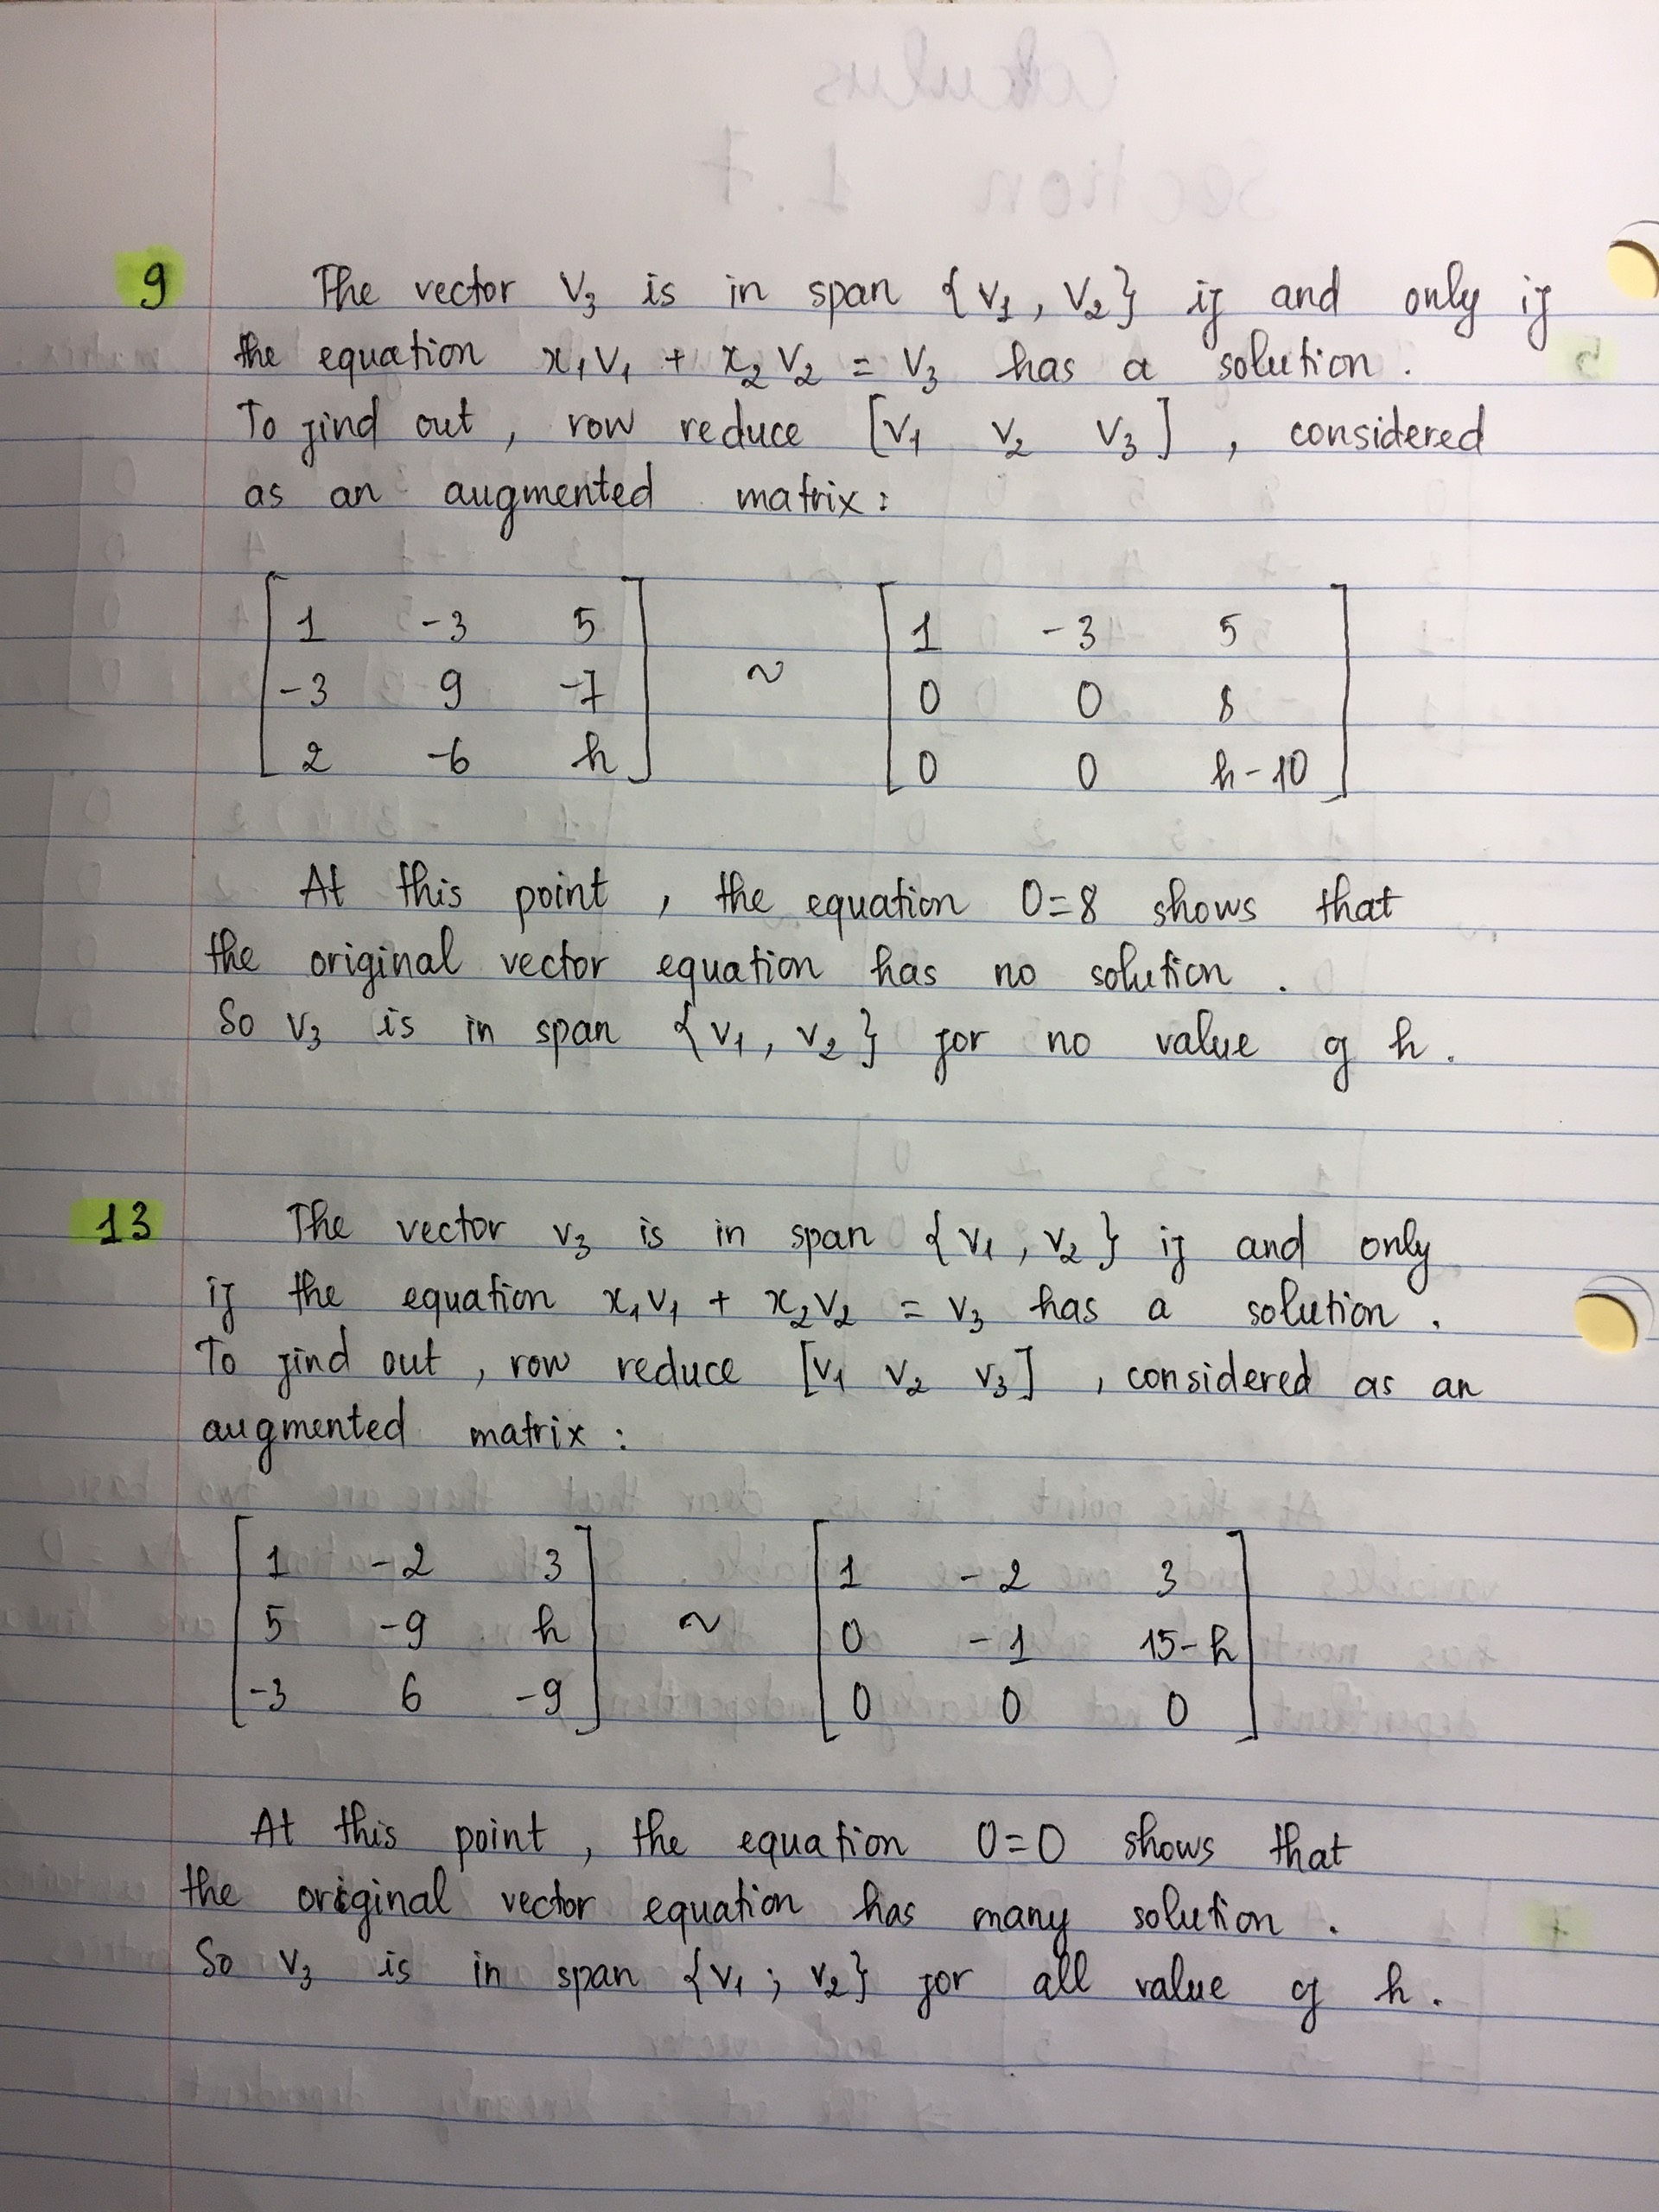 Calculus
Section 1.7
9 The vector v₃ is in span {v₁, v₂} if and only if
the equation x₁v₁ + x₂v₂ = v₃ has a solution.
To find out, row reduce [v₁ v₂ v₃], considered
as an augmented matrix:
[1 -3 5] [1 -3 5]
[-3 9 -7] ~ [0 0 8]
[2 -6 h] [0 0 h-10]
At this point, the equation 0=8 shows that
the original vector equation has no solution.
So v₃ is in span {v₁, v₂} for no value of h.
13 The vector v₃ is in span {v₁, v₂} if and only
if the equation x₁v₁ + x₂v₂ = v₃ has a solution.
To find out, row reduce [v₁ v₂ v₃], considered as an
augmented matrix:
[1 -2 3] [1 -2 3]
[5 -9 h] ~ [0 -1 15-h]
[-3 6 -9] [0 0 0]
At this point, the equation 0=0 shows that
the original vector equation has many solution.
So v₃ is in span {v₁; v₂} for all value of h.